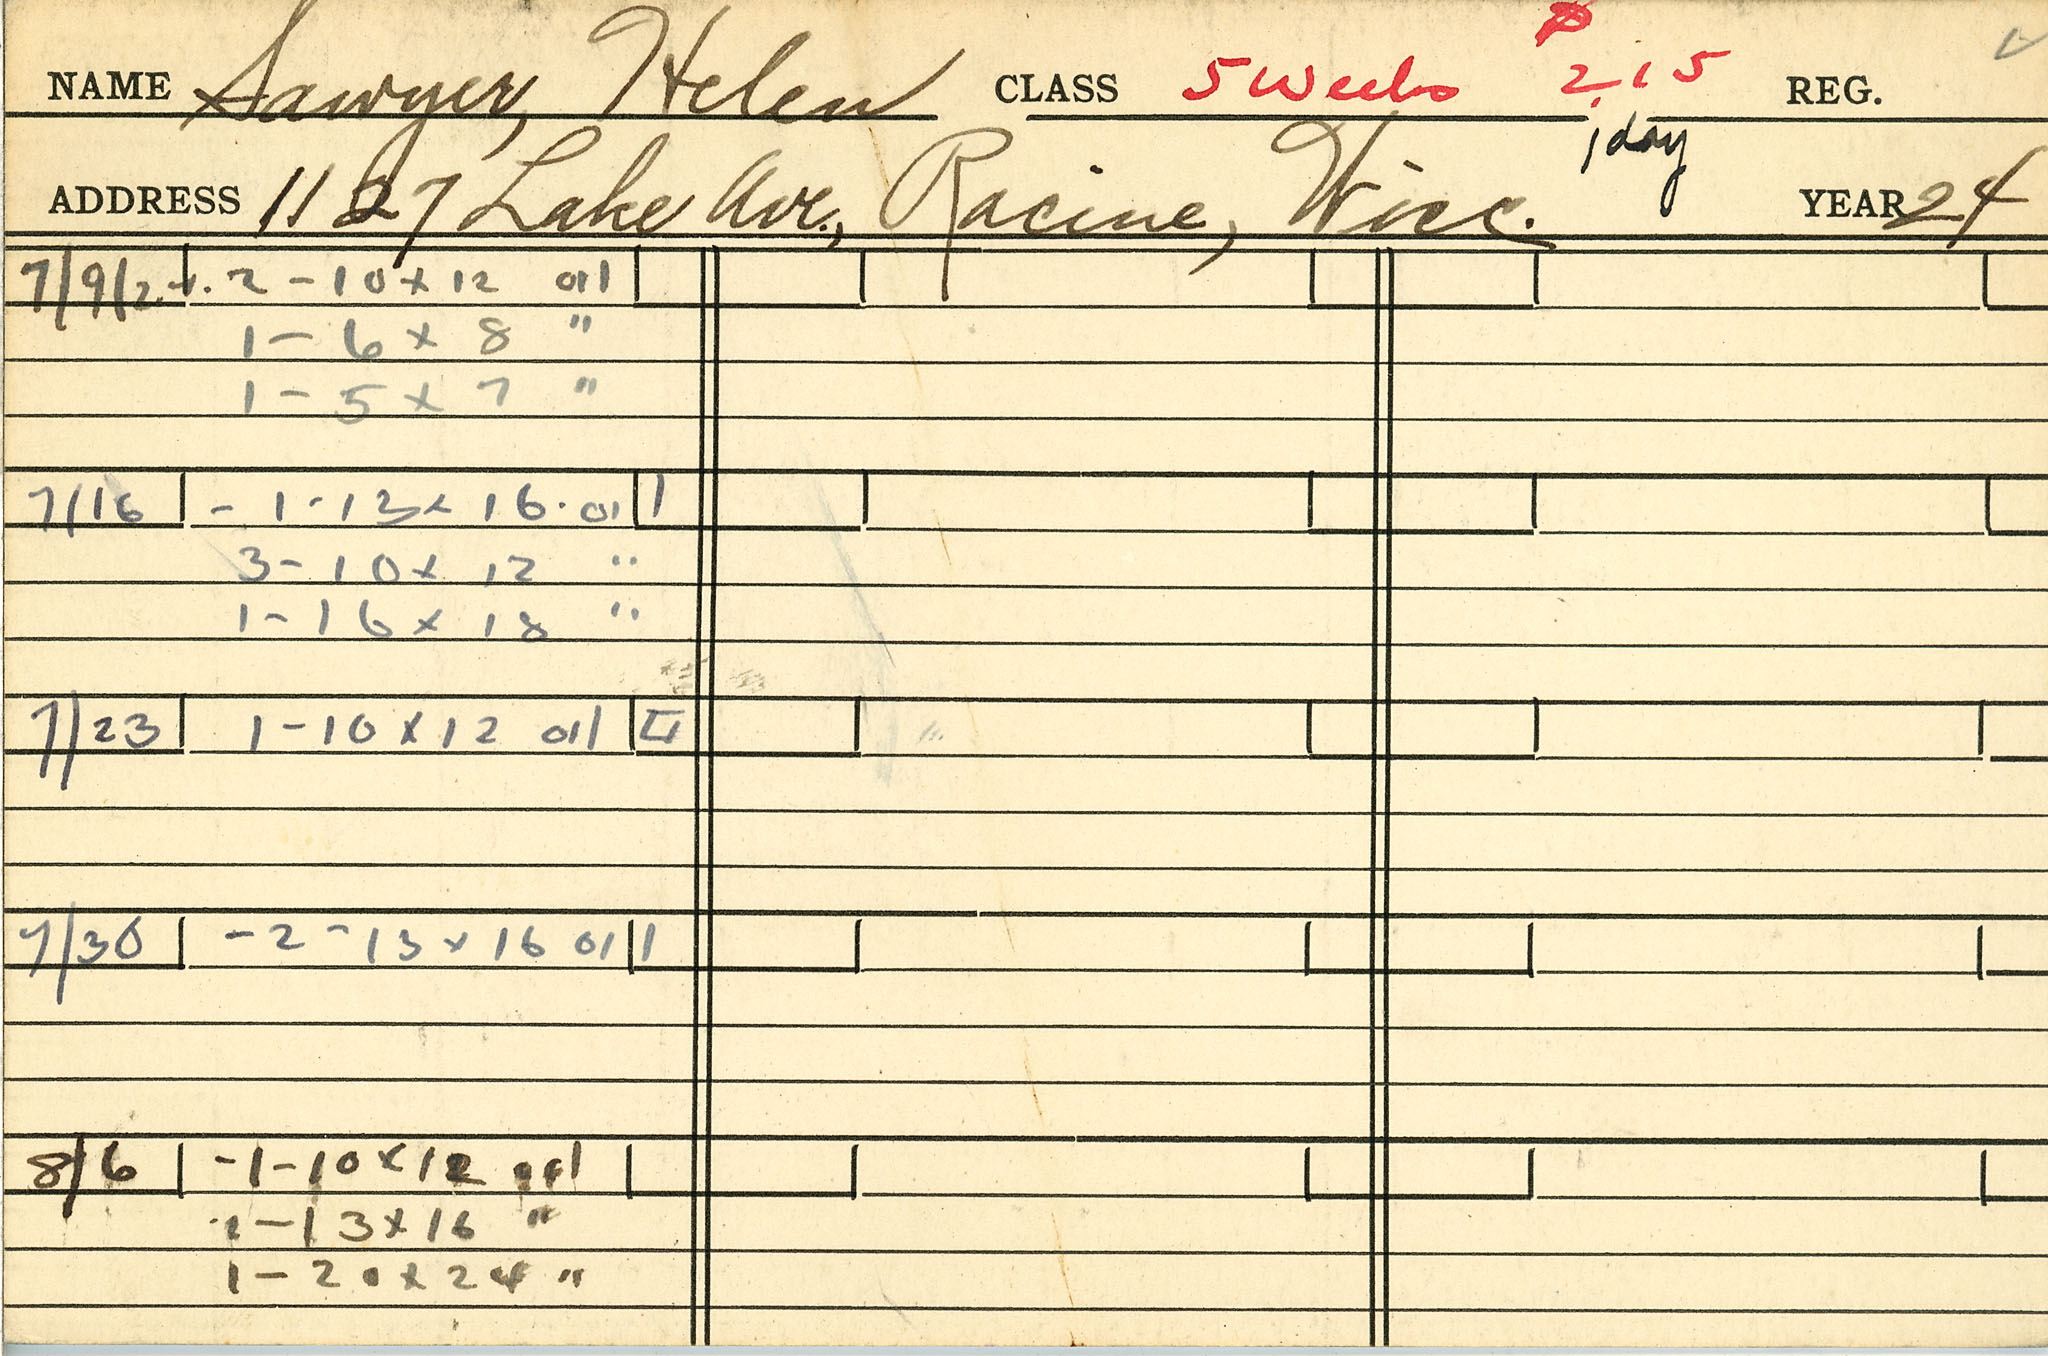 NAME Sawyer, Helen CLASS 5 Weeks 2.15 REG.
1 day
ADDRESS 1127 Lake Ave., Racine, Wisc. YEAR 24
7/9/24. 2 - 10 x 12 oil
1 - 6 x 8 "
1 - 5 x 7 "
7/16 - 1 - 13 x 16 . oil 1
3 - 10 x 12 "
1 - 16 x 18 "
7/23 1 - 10 x 12 oil II
7/30 - 2 - 13 x 16 oil 1
8/6 - 1 - 10 x 12 oil
2 - 13 x 16 "
1 - 20 x 24 "